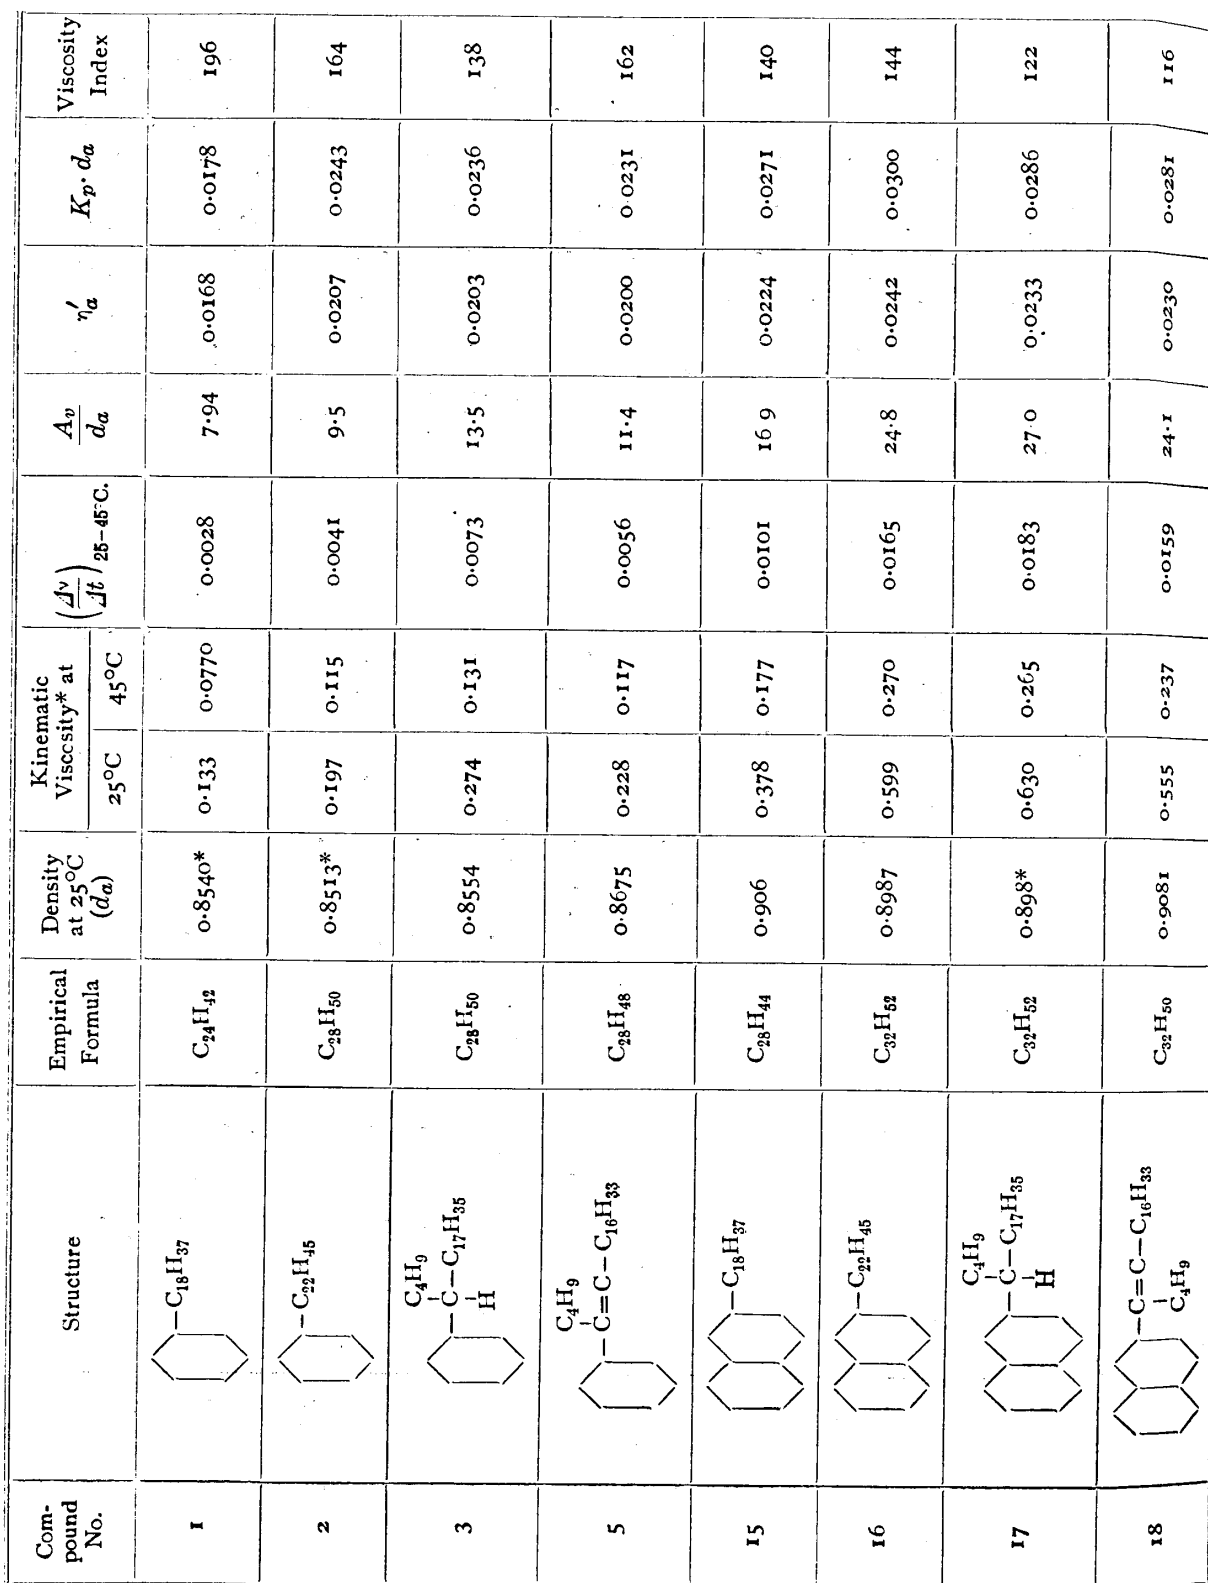 Com-
pound
No.
Structure
Empirical
Formula
Density
at 25°C
(da)
Kinematic
Visccsity* at
25°C
45°C
(Δν/Δt) 25–45°C.
Av/da
η′a
Kp·da
Viscosity
Index
1 –C18H37 C24H42 0·8540* 0·133 0·0770 0·0028 7·94 0·0168 0·0178 196
2 –C22H45 C28H50 0·8513* 0·197 0·115 0·0041 9·5 0·0207 0·0243 164
C4H9
3 –C–C17H35 C28H50 0·8554 0·274 0·131 0·0073 13·5 0·0203 0·0236 138
H
C4H9
5 –C=C–C16H33 C28H48 0·8675 0·228 0·117 0·0056 11·4 0·0200 0·0231 162
15 –C18H37 C28H44 0·906 0·378 0·177 0·0101 16 9 0·0224 0·0271 140
16 –C22H45 C32H52 0·8987 0·599 0·270 0·0165 24·8 0·0242 0·0300 144
C4H9
17 –C–C17H35 C32H52 0·898* 0·630 0·265 0·0183 27·0 0·0233 0·0286 122
H
18 –C=C–C16H33 C32H50 0·9081 0·555 0·237 0·0159 24·1 0·0230 0·0281 116
C4H9